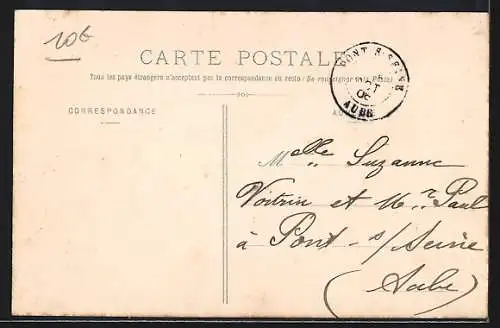 10€
CARTE POSTALE
Tous les pays étrangers n'acceptent pas la correspondance au recto (Se renseigner à la Poste)
PONT S-SEINE
OCT
06
AUBE
CORRESPONDANCE
Melle Suzanne
Voitrin et Mr Paul
à Pont-s/Seine
(Aube)